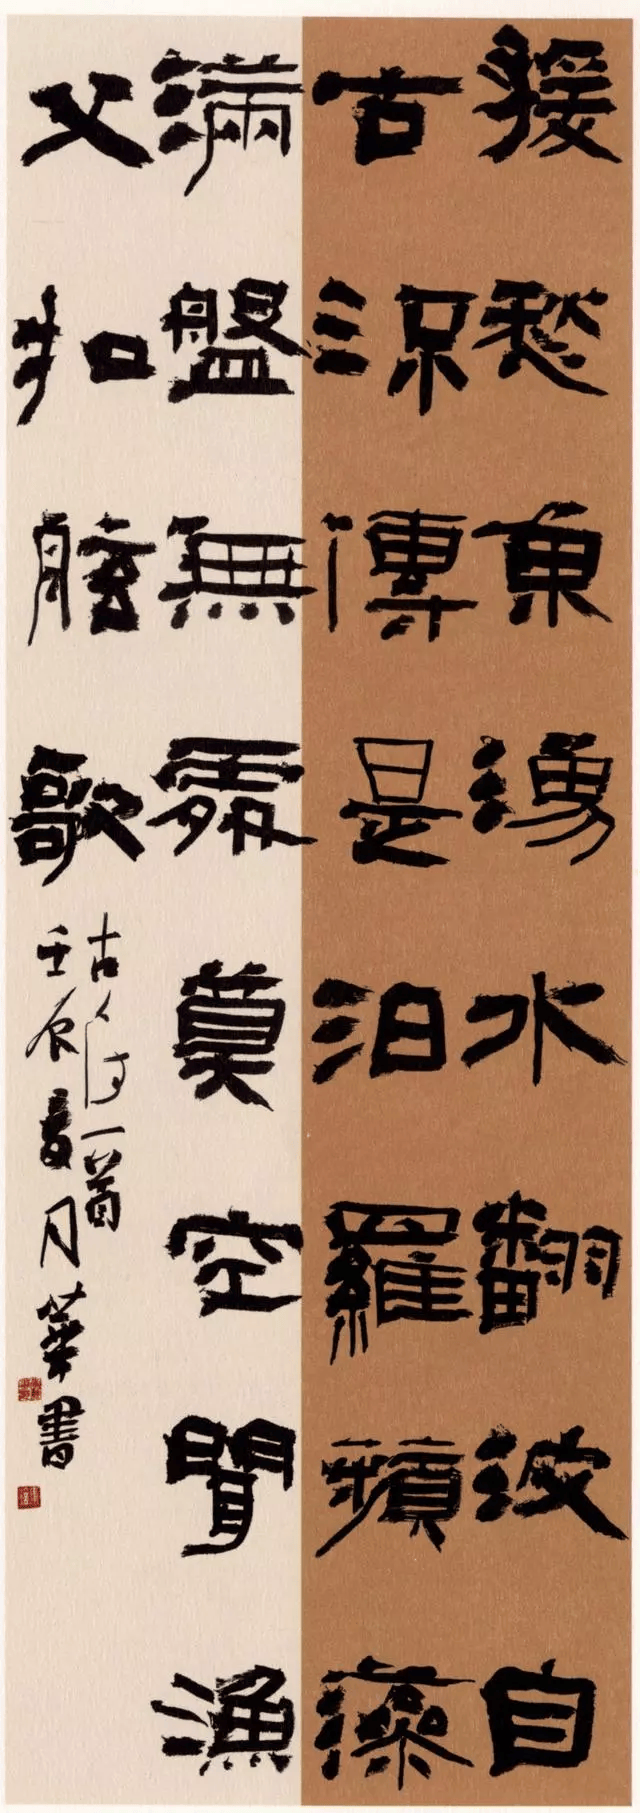 猨愁魚湧水翻波自
古流傳是汨羅蘋藻
滿盤無處奠空聞漁
父扣舷歌
古詩一首
壬辰月華書